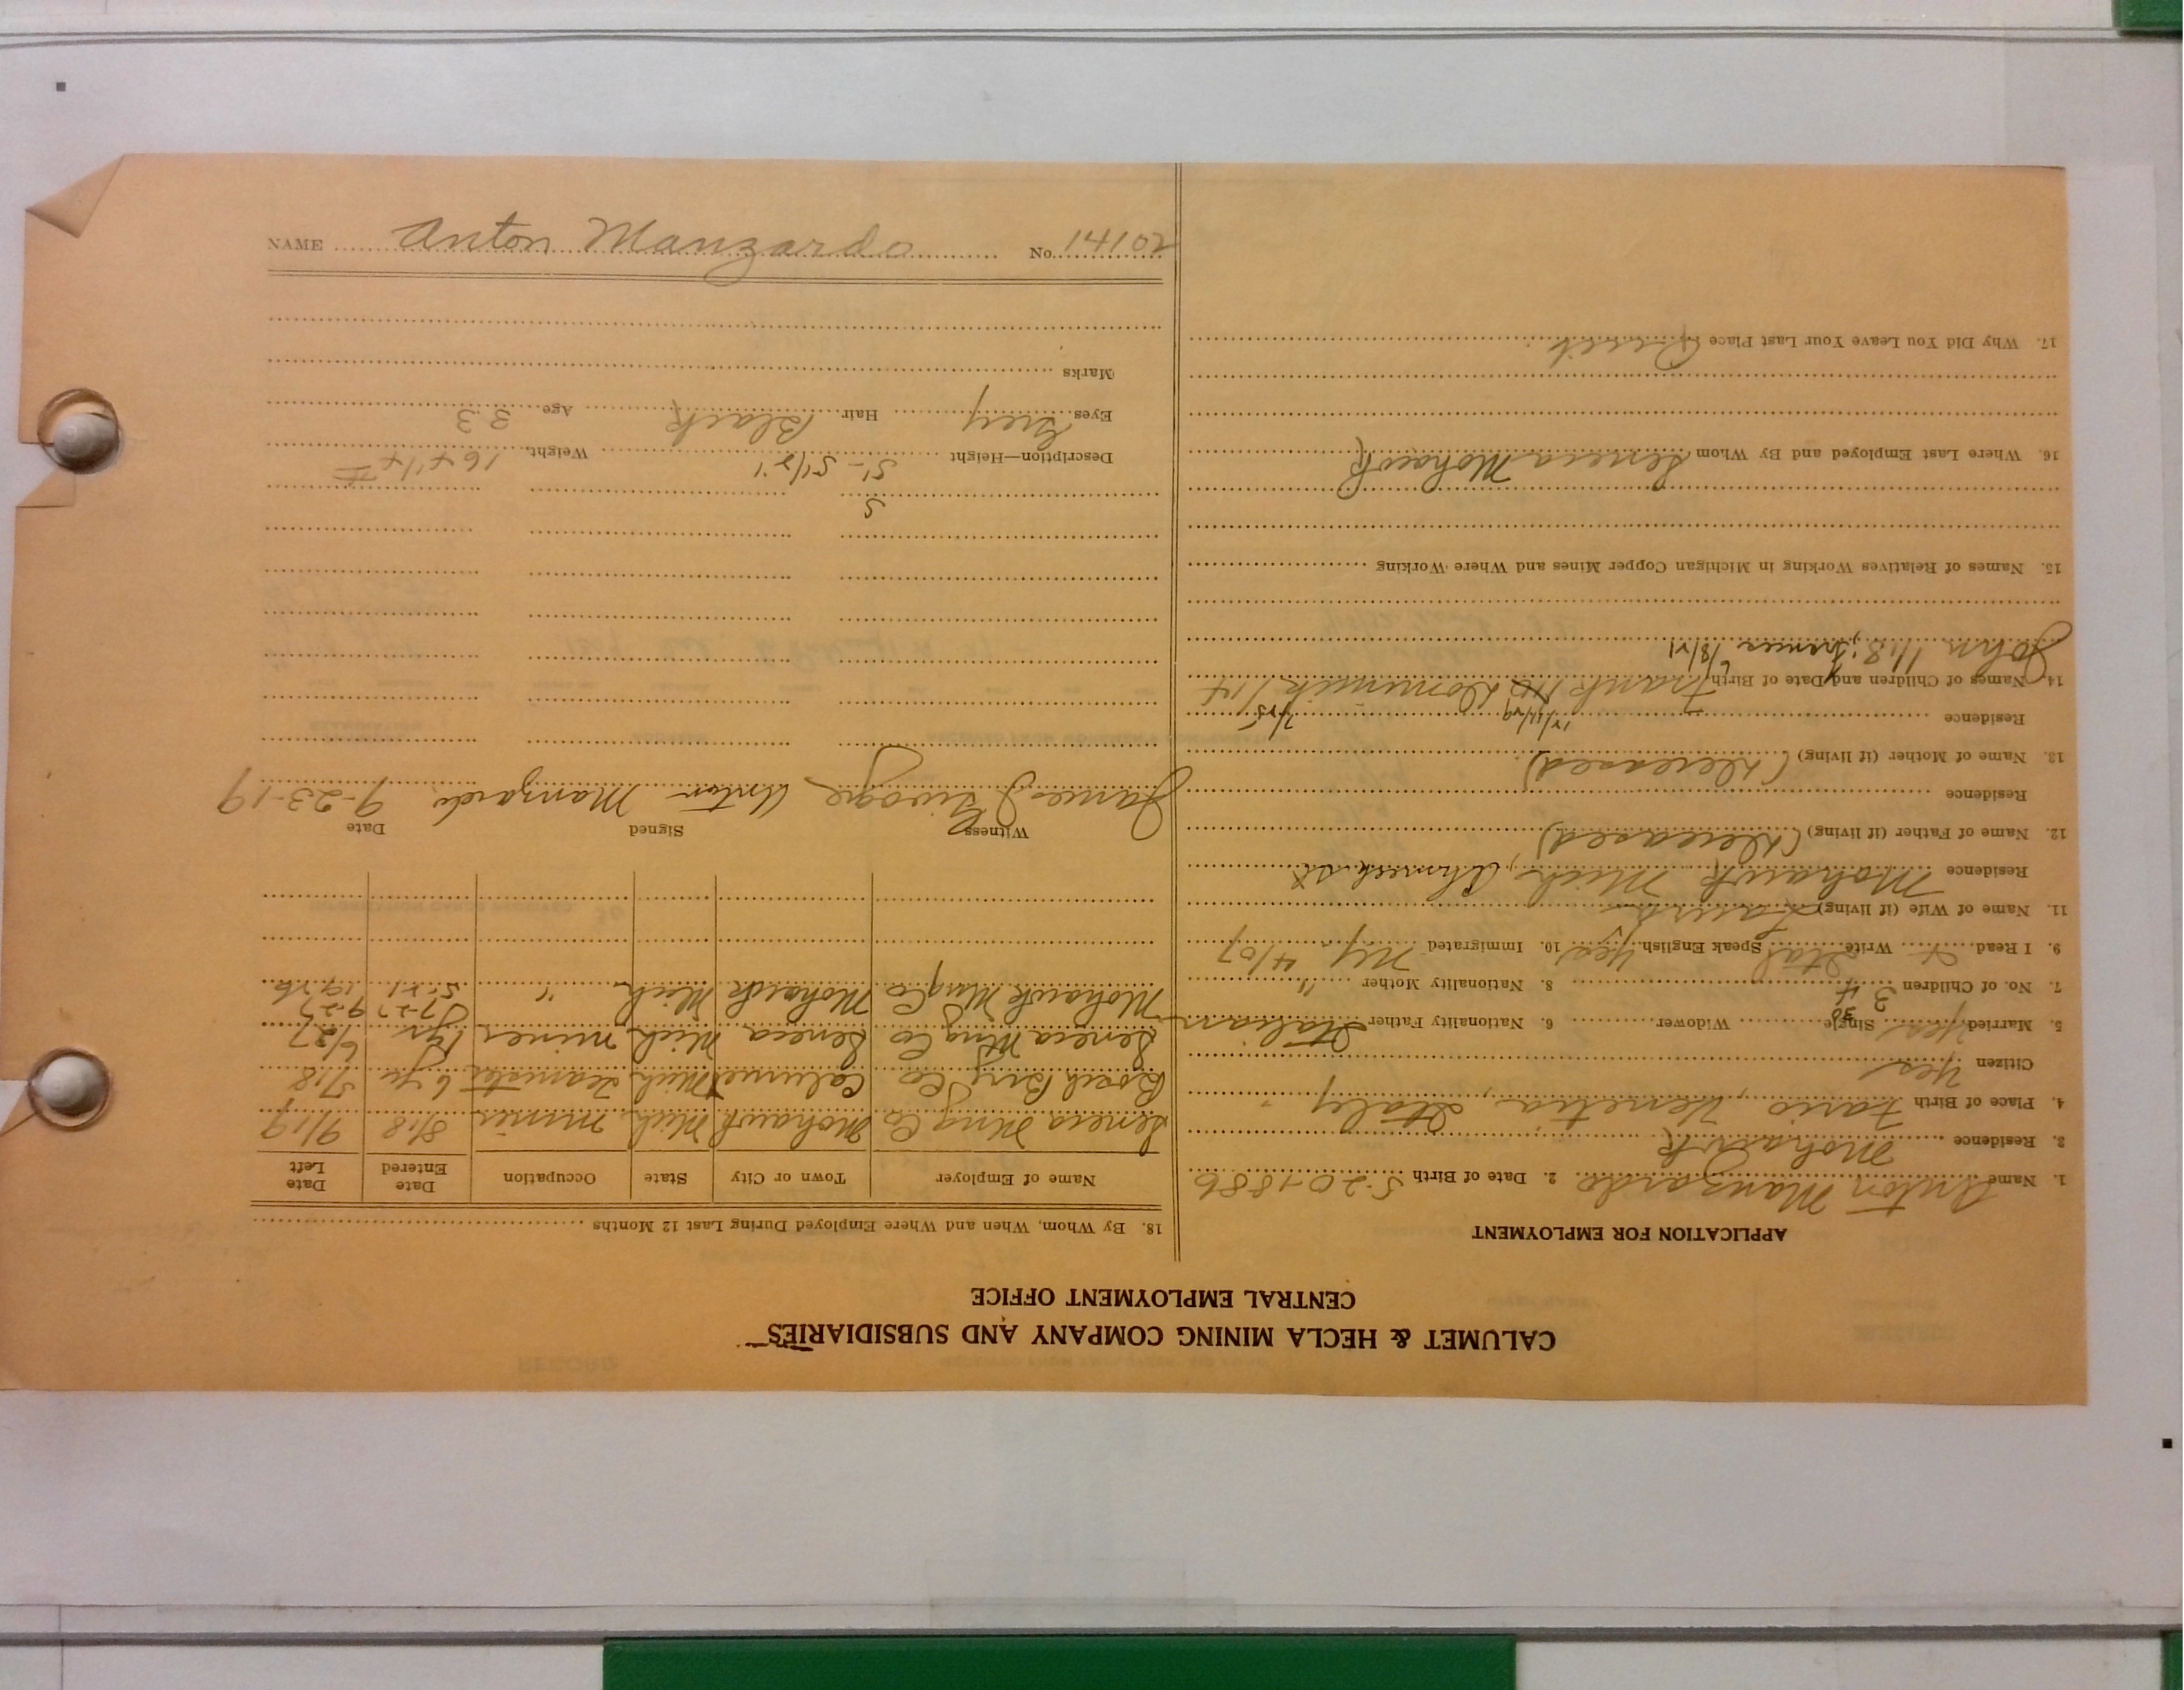 CALUMET & HECLA MINING COMPANY AND SUBSIDIARIES
CENTRAL EMPLOYMENT OFFICE
APPLICATION FOR EMPLOYMENT
1. Name Anton Manzardo 2. Date of Birth 5-20-1886
3. Residence Mohawk
4. Place of Birth Fario, Venetia, Italy
Citizen Yes
5. Married Yes Single 38 Widower 6. Nationality Father Italian
7. No. of Children 3 4 8. Nationality Mother "
9. I Read Write Ital Speak English Yes 10. Immigrated NY 4/07
11. Name of Wife (if living) Laura
Residence Mohawk Mich, Ahmeek St
12. Name of Father (if living) (Deceased)
Residence
13. Name of Mother (if living) (Deceased)
Residence
14. Names of Children and Date of Birth Frank Dominick 1/14
John 1/18; Frances 6/8/21
15. Names of Relatives Working in Michigan Copper Mines and Where Working
16. Where Last Employed and By Whom Seneca Mohawk
17. Why Did You Leave Your Last Place Quit
18. By Whom, When and Where Employed During Last 12 Months
Name of Employer Town or City State Occupation Date Entered Date Left
Seneca Mng Co Mohawk Mich. miner 8/18 9/19
Bosch Brg Co Calumet Mich Teamster 6 yr 8/18
Seneca Mng Co Seneca Mich miner 1 yr 6/27
Mohawk Mng Co Mohawk Mich " 7-27 9-27
Witness Signed Date
James J Anton Manzardo 9-23-19
S
Description—Height 5'-5 1/2" Weight 164 1/4
Eyes Grey Hair Black Age 33
Marks
NAME Anton Manzardo No. 14102